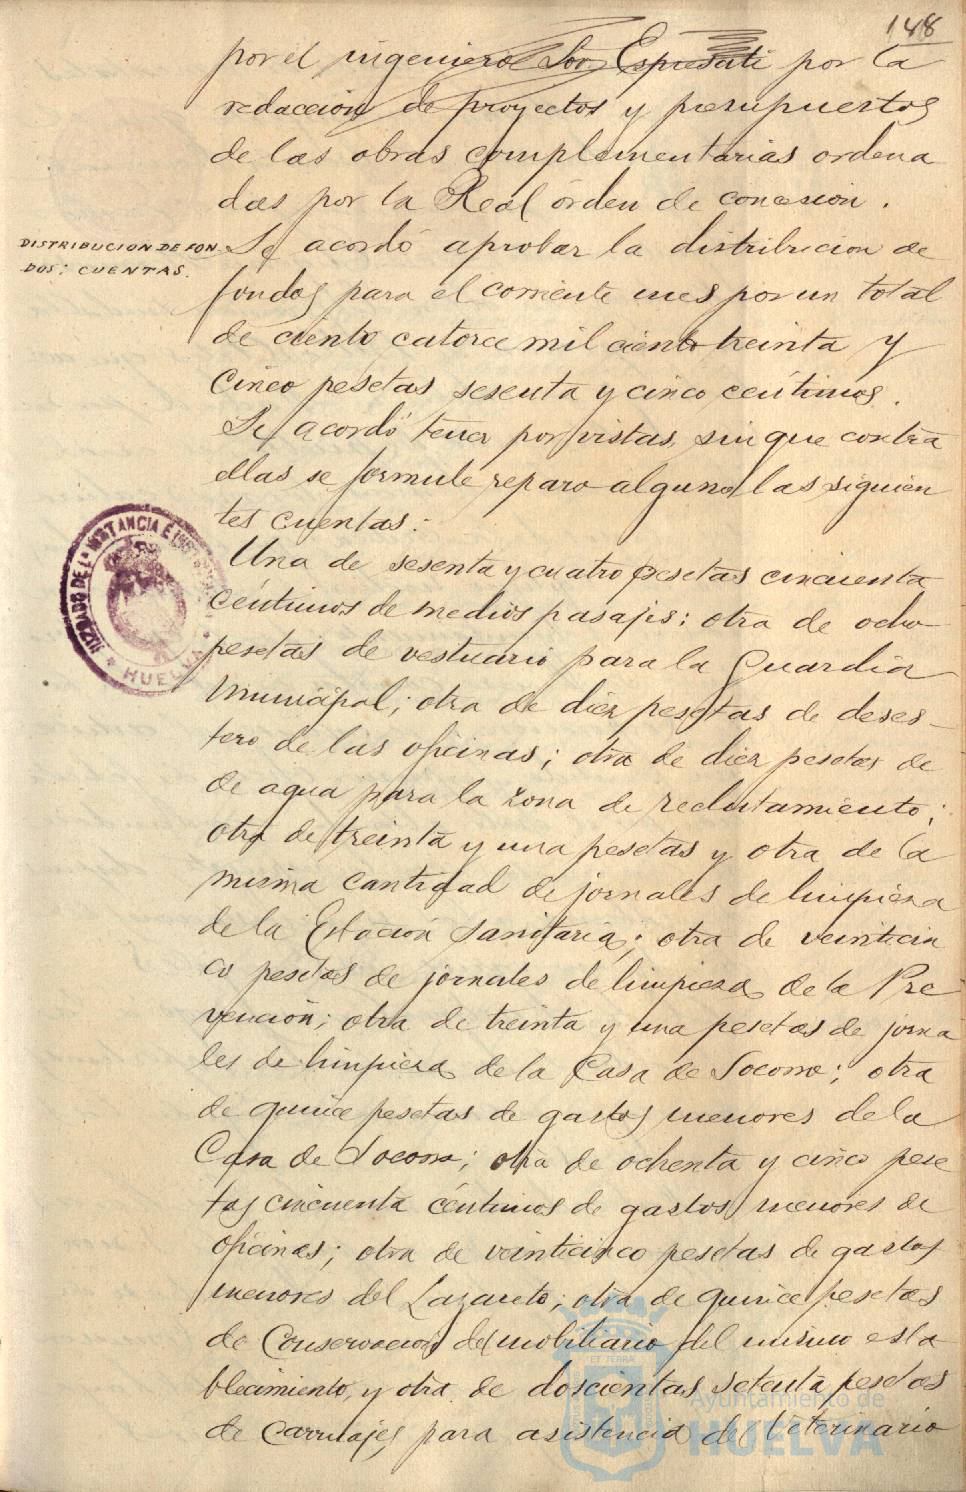 148
por el ingeniero Sor. Espresati por la
redacción de proyectos y presupuestos
de las obras complementarias ordena
das por la Real órden de concesion.
DISTRIBUCION DE FON
DOS; CUENTAS.
Se acordó aprobar la distribucion de
fondos para el corriente mes por un total
de ciento catorce mil ciento treinta y
cinco pesetas sesenta y cinco céntimos.
Se acordó tener por vistas, sin que contra
ellas se formule reparo alguno las siguien
tes cuentas:
Una de sesenta y cuatro pesetas cincuenta
céntimos de medios pasajes; otra de ocho
pesetas de vestuario para la Guardia
Municipal; otra de diez pesetas de deses-
tero de las oficinas; otra de diez pesetas de
de agua para la zona de reclutamiento;
otra de treinta y una pesetas y otra de la
misma cantidad de jornales de limpieza
de la Estación Sanitaria; otra de veinticin
co pesetas de jornales de limpieza de la Pre
vención; otra de treinta y una pesetas de jorna
les de limpieza de la Casa de Socorro; otra
de quince pesetas de gastos menores de la
Casa de Socorro; otra de ochenta y cinco pese
tas cincuenta céntimos de gastos menores de
oficinas; otra de veinticinco pesetas de gastos
menores del Lazareto; otra de quince pesetas
de conservacion del mobiliario del mismo esta
blecimiento, y otra de doscientas setenta pesetas
de carruajes para asistencia del Veterinario
JUZGADO DE 1ª INSTANCIA E
HUELVA
Ayuntamiento de
HUELVA